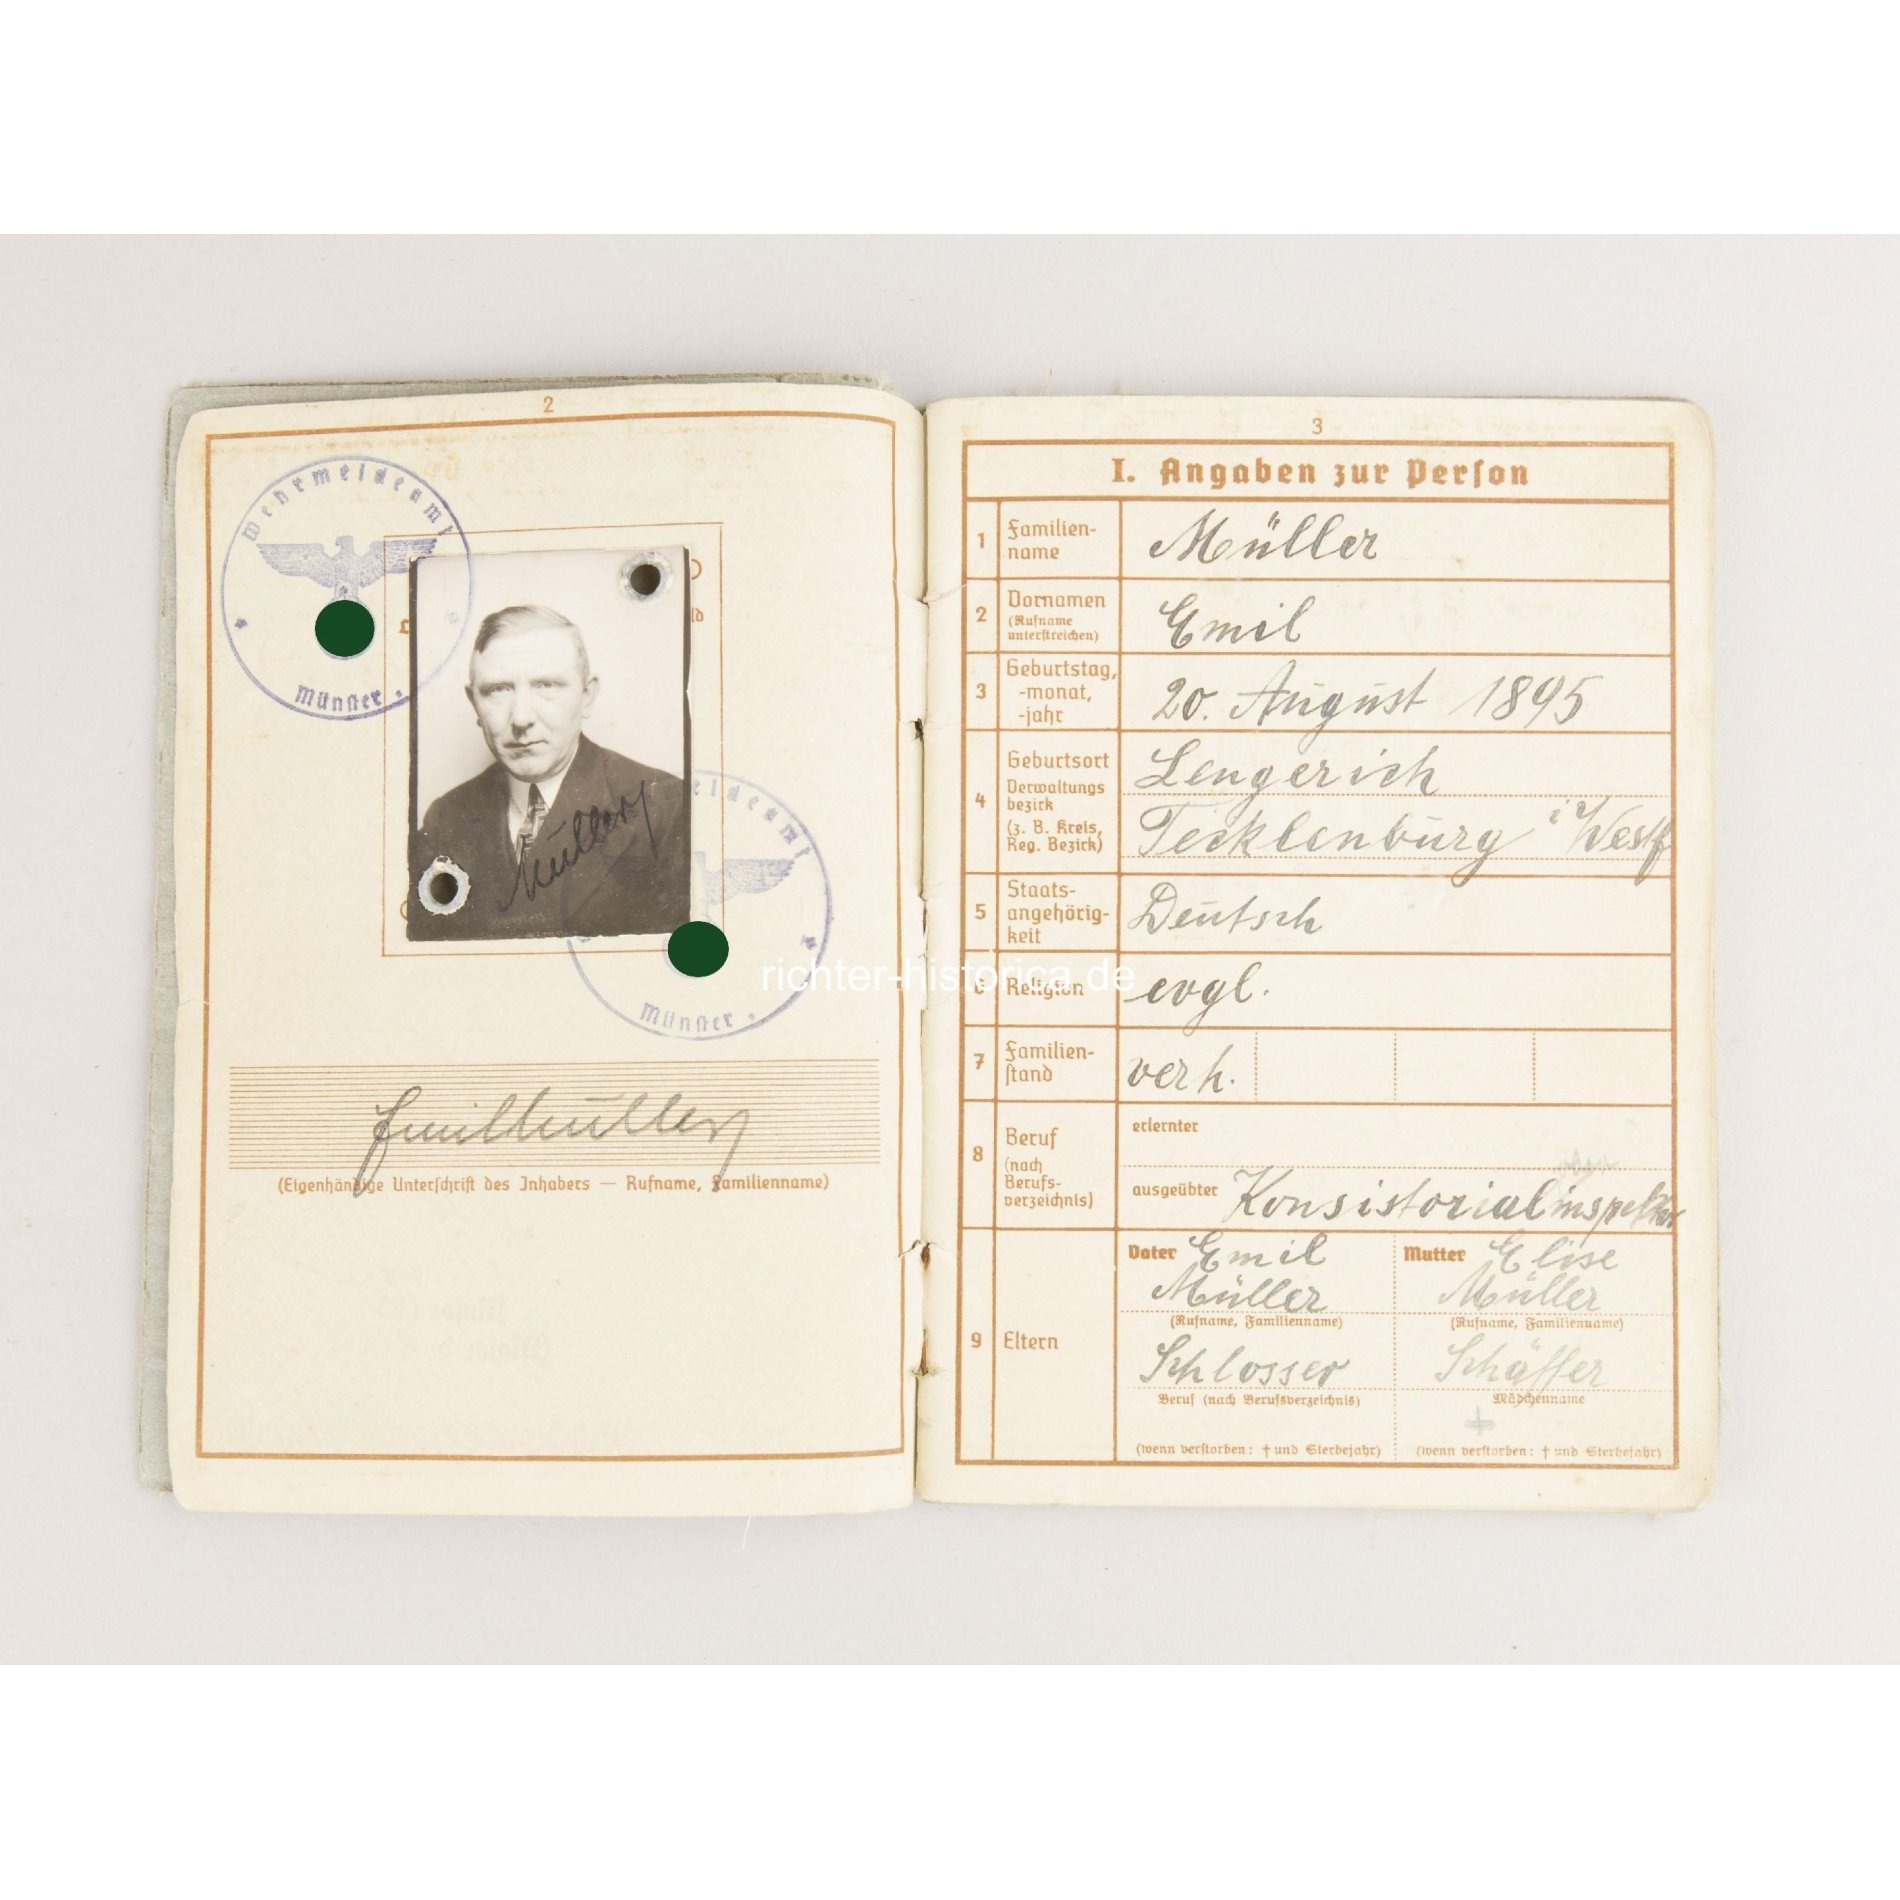 2
Wehrmeldeamt
Münster
Müller
meldeamt
Münster
Emil Müller
(Eigenhändige Unterschrift des Inhabers — Rufname, Familienname)
richter-historica.de
3
I. Angaben zur Person
1 Familien-
name
Müller
2 Vornamen
(Rufname
unterstreichen)
Emil
3 Geburtstag,
-monat,
-jahr
20. August 1895
4 Geburtsort
Verwaltungs
bezirk
(z. B. Kreis,
Reg. Bezirk)
Lengerich
Tecklenburg i Westf
5 Staats-
angehörig-
keit
Deutsch
6 Religion
evgl.
7 Familien-
stand
verh.
8 Beruf
(nach
Berufs-
verzeichnis)
erlernter
ausgeübter Konsistorialinspektor
9 Eltern
Vater Emil
Müller
(Rufname, Familienname)
Schlosser
Beruf (nach Berufsverzeichnis)
(wenn verstorben: † und Sterbejahr)
Mutter Elise
Müller
(Rufname, Familienname)
Schäffer
Mädchenname
†
(wenn verstorben: † und Sterbejahr)